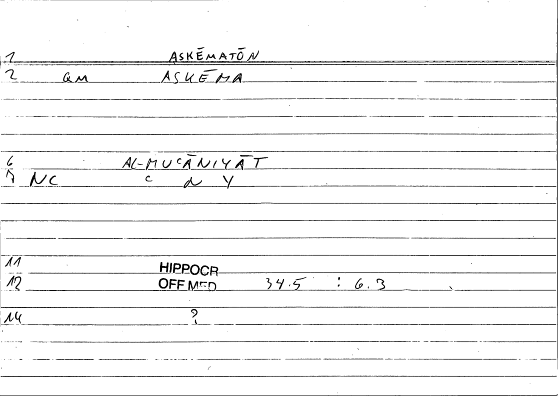 1 ASKĒMATŌN
2 QM ASKĒMA
6 AL-MUʿĀNIYĀT
NC ʿ N Y
11 HIPPOCR
12 OFF MED 34.5 : 6.3
14 ?